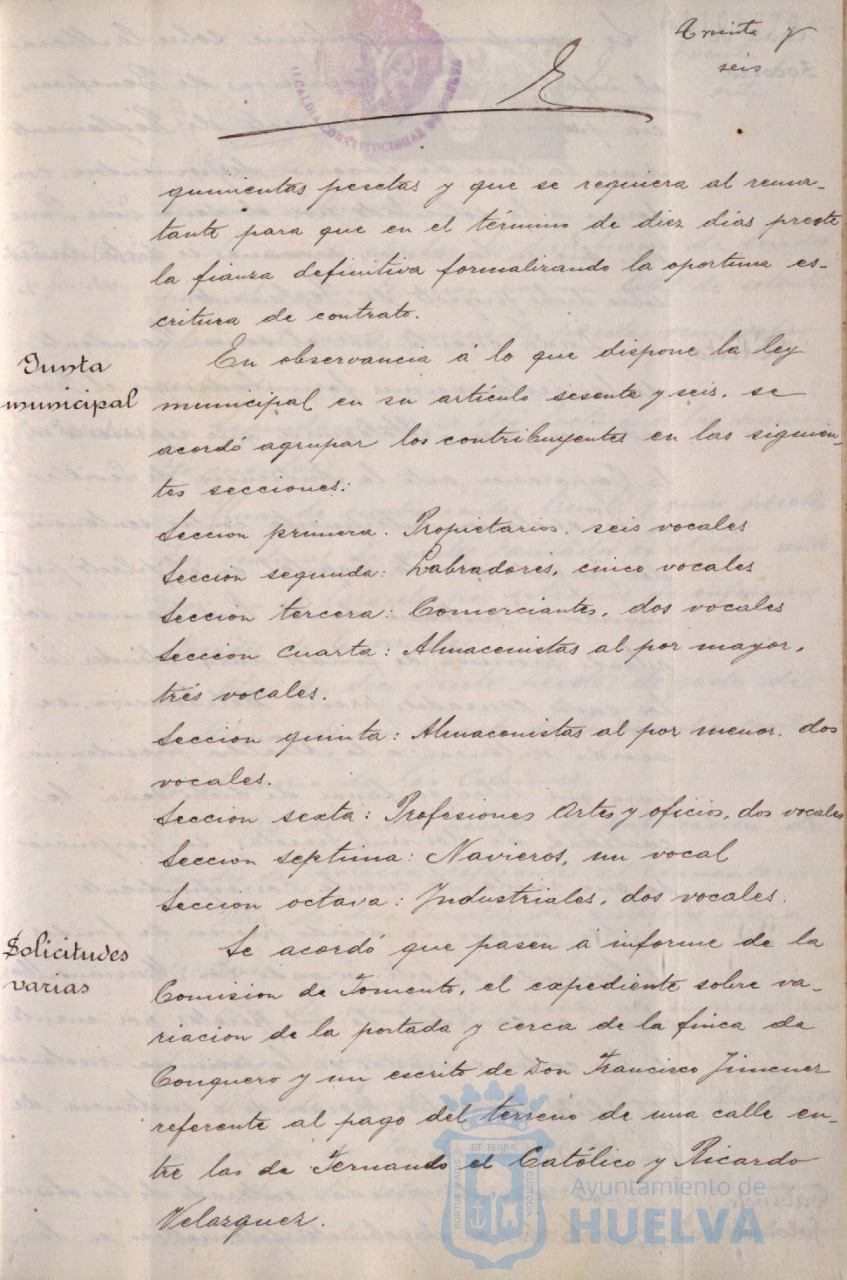 Treinta y
seis
ALCALDIA CONSTITUCIONAL DE HUELVA
quinientas pesetas y que se requiera al rema-
tante para que en el término de diez días preste
la fianza definitiva formalizando la oportuna es-
critura de contrato.
Junta
municipal
En observancia á lo que dispone la ley
municipal en su artículo sesenta y seis, se
acordó agrupar los contribuyentes en las siguien-
tes secciones:
Seccion primera. Propietarios, seis vocales
Seccion segunda: Labradores, cinco vocales
Seccion tercera: Comerciantes, dos vocales
Seccion cuarta: Almacenistas al por mayor,
trés vocales.
Seccion quinta: Almacenistas al por menor, dos
vocales.
Seccion sexta: Profesiones Artes y oficios, dos vocales
Seccion septima: Navieros, un vocal
Seccion octava: Industriales, dos vocales.
Solicitudes
varias
Se acordó que pasen á informe de la
Comision de Fomento, el expediente sobre va-
riacion de la portada y cerca de la finca de
Conquero y un escrito de Don Francisco Jimenez
referente al pago del terreno de una calle en-
tre las de Fernando el Católico y Ricardo
Velazquez.
ET TERRÆ
PORTUS MARIS
CUSTODIA
Ayuntamiento de
HUELVA